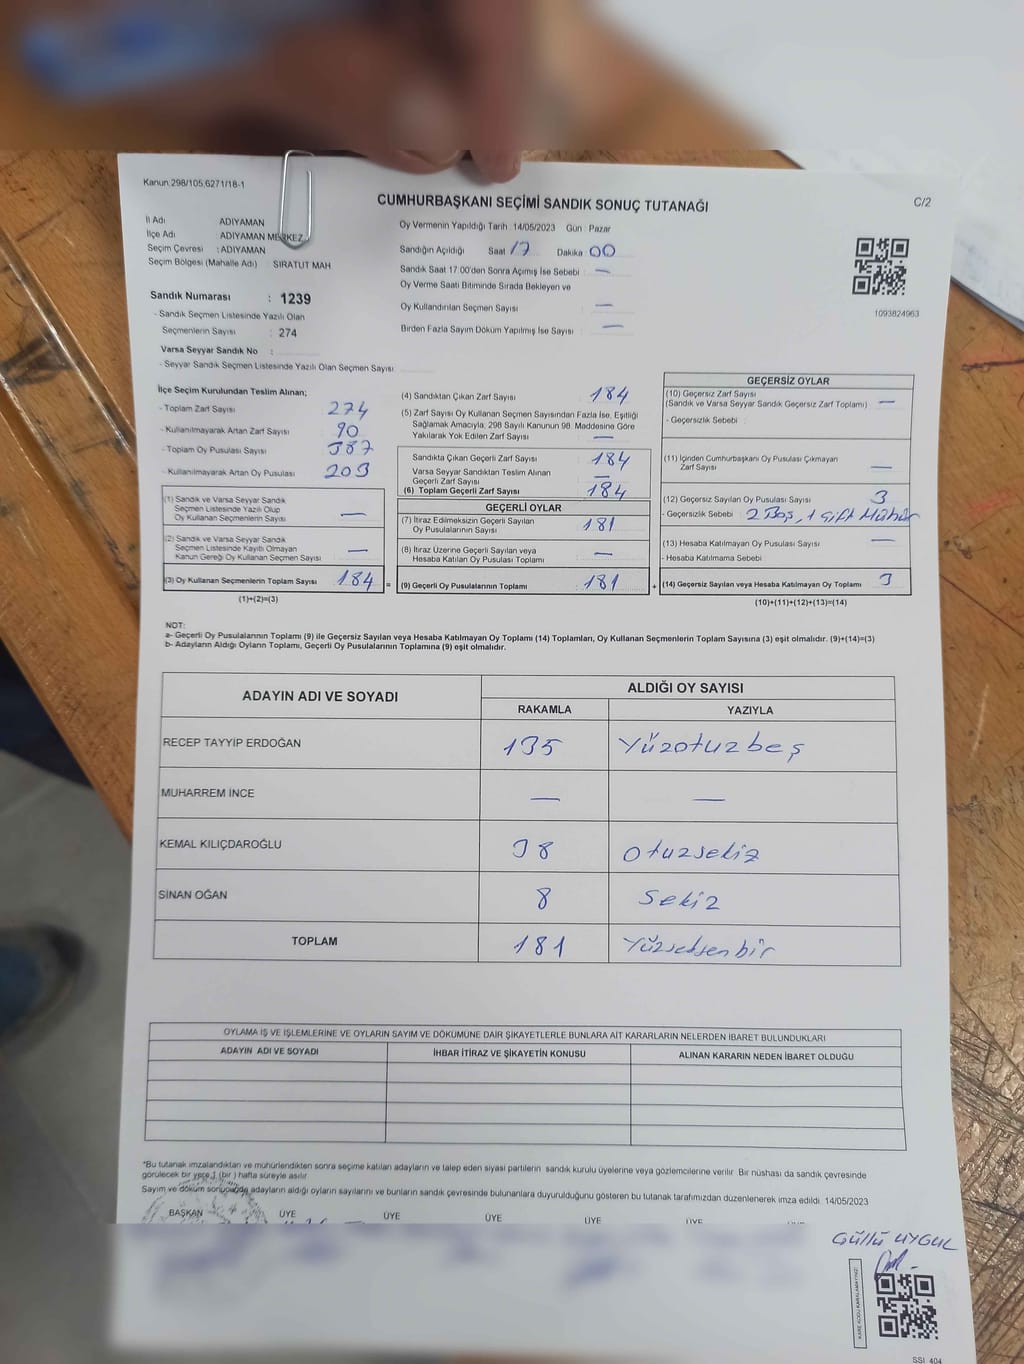 Kanun.298/105,6271/18-1
CUMHURBAŞKANI SEÇİMİ SANDIK SONUÇ TUTANAĞI
C/2
İl Adı ADIYAMAN
İlçe Adı : ADIYAMAN MERKEZ
Seçim Çevresi : ADIYAMAN
Seçim Bölgesi (Mahalle Adı) SIRATUT MAH
Oy Vermenin Yapıldığı Tarih 14/05/2023 Gün Pazar
Sandığın Açıldığı Saat 17 Dakika 00
Sandık Saat 17:00'den Sonra Açımış İse Sebebi : —
Oy Verme Saati Bitiminde Sırada Bekleyen ve
Oy Kullandırılan Seçmen Sayısı : —
Birden Fazla Sayım Döküm Yapılmış İse Sayısı : —
1093824963
Sandık Numarası : 1239
- Sandık Seçmen Listesinde Yazılı Olan
Seçmenlerin Sayısı : 274
Varsa Seyyar Sandık No :
- Seyyar Sandık Seçmen Listesinde Yazılı Olan Seçmen Sayısı
İlçe Seçim Kurulundan Teslim Alınan;
- Toplam Zarf Sayısı 274
- Kullanılmayarak Artan Zarf Sayısı 90
- Toplam Oy Pusulası Sayısı 387
- Kullanılmayarak Artan Oy Pusulası 203
(1) Sandık ve Varsa Seyyar Sandık
Seçmen Listesinde Yazılı Olup
Oy Kullanan Seçmenlerin Sayısı —
(2) Sandık ve Varsa Seyyar Sandık
Seçmen Listesinde Kayıtlı Olmayan
Kanun Gereği Oy Kullanan Seçmen Sayısı —
(3) Oy Kullanan Seçmenlerin Toplam Sayısı 184 =
(1)+(2)=(3)
(4) Sandıktan Çıkan Zarf Sayısı 184
(5) Zarf Sayısı Oy Kullanan Seçmen Sayısından Fazla İse, Eşitliği
Sağlamak Amacıyla, 298 Sayılı Kanunun 98. Maddesine Göre
Yakılarak Yok Edilen Zarf Sayısı —
Sandıkta Çıkan Geçerli Zarf Sayısı 184
Varsa Seyyar Sandıktan Teslim Alınan
Geçerli Zarf Sayısı —
(6) Toplam Geçerli Zarf Sayısı 184
GEÇERLİ OYLAR
(7) İtiraz Edilmeksizin Geçerli Sayılan
Oy Pusulalarının Sayısı 181
(8) İtiraz Üzerine Geçerli Sayılan veya
Hesaba Katılan Oy Pusulası Toplamı —
(9) Geçerli Oy Pusulalarının Toplamı 181 +
GEÇERSİZ OYLAR
(10) Geçersiz Zarf Sayısı
(Sandık ve Varsa Seyyar Sandık Geçersiz Zarf Toplamı) —
- Geçersizlik Sebebi :
(11) İçinden Cumhurbaşkanı Oy Pusulası Çıkmayan
Zarf Sayısı —
(12) Geçersiz Sayılan Oy Pusulası Sayısı 3
- Geçersizlik Sebebi : 2 Boş, 1 çift Mühür
(13) Hesaba Katılmayan Oy Pusulası Sayısı —
- Hesaba Katılmama Sebebi
(14) Geçersiz Sayılan veya Hesaba Katılmayan Oy Toplamı 3
(10)+(11)+(12)+(13)=(14)
NOT:
a- Geçerli Oy Pusulalarının Toplamı (9) ile Geçersiz Sayılan veya Hesaba Katılmayan Oy Toplamı (14) Toplamları, Oy Kullanan Seçmenlerin Toplam Sayısına (3) eşit olmalıdır. (9)+(14)=(3)
b- Adayların Aldığı Oyların Toplamı, Geçerli Oy Pusulalarının Toplamına (9) eşit olmalıdır.
ADAYIN ADI VE SOYADI
ALDIĞI OY SAYISI
RAKAMLA YAZIYLA
RECEP TAYYİP ERDOĞAN 135 Yüzotuzbeş
MUHARREM İNCE — —
KEMAL KILIÇDAROĞLU 38 Otuzsekiz
SİNAN OĞAN 8 Sekiz
TOPLAM 181 Yüzseksenbir
OYLAMA İŞ VE İŞLEMLERİNE VE OYLARIN SAYIM VE DÖKÜMÜNE DAİR ŞİKAYETLERLE BUNLARA AİT KARARLARIN NELERDEN İBARET BULUNDUKLARI
ADAYIN ADI VE SOYADI İHBAR İTİRAZ VE ŞİKAYETİN KONUSU ALINAN KARARIN NEDEN İBARET OLDUĞU
*Bu tutanak imzalandıktan ve mühürlendikten sonra seçime katılan adayların ve talep eden siyasi partilerin sandık kurulu üyelerine veya gözlemcilerine verilir. Bir nüshası da sandık çevresinde
görülecek bir yere 1 (bir) hafta süreyle asılır.
Sayım ve döküm sonucunda adayların aldığı oyların sayılarını ve bunların sandık çevresinde bulunanlara duyurulduğunu gösteren bu tutanak tarafımızdan düzenlenerek imza edildi. 14/05/2023
BAŞKAN ÜYE ÜYE ÜYE ÜYE ÜYE
GÜLLÜ UYGUL
SSI 404